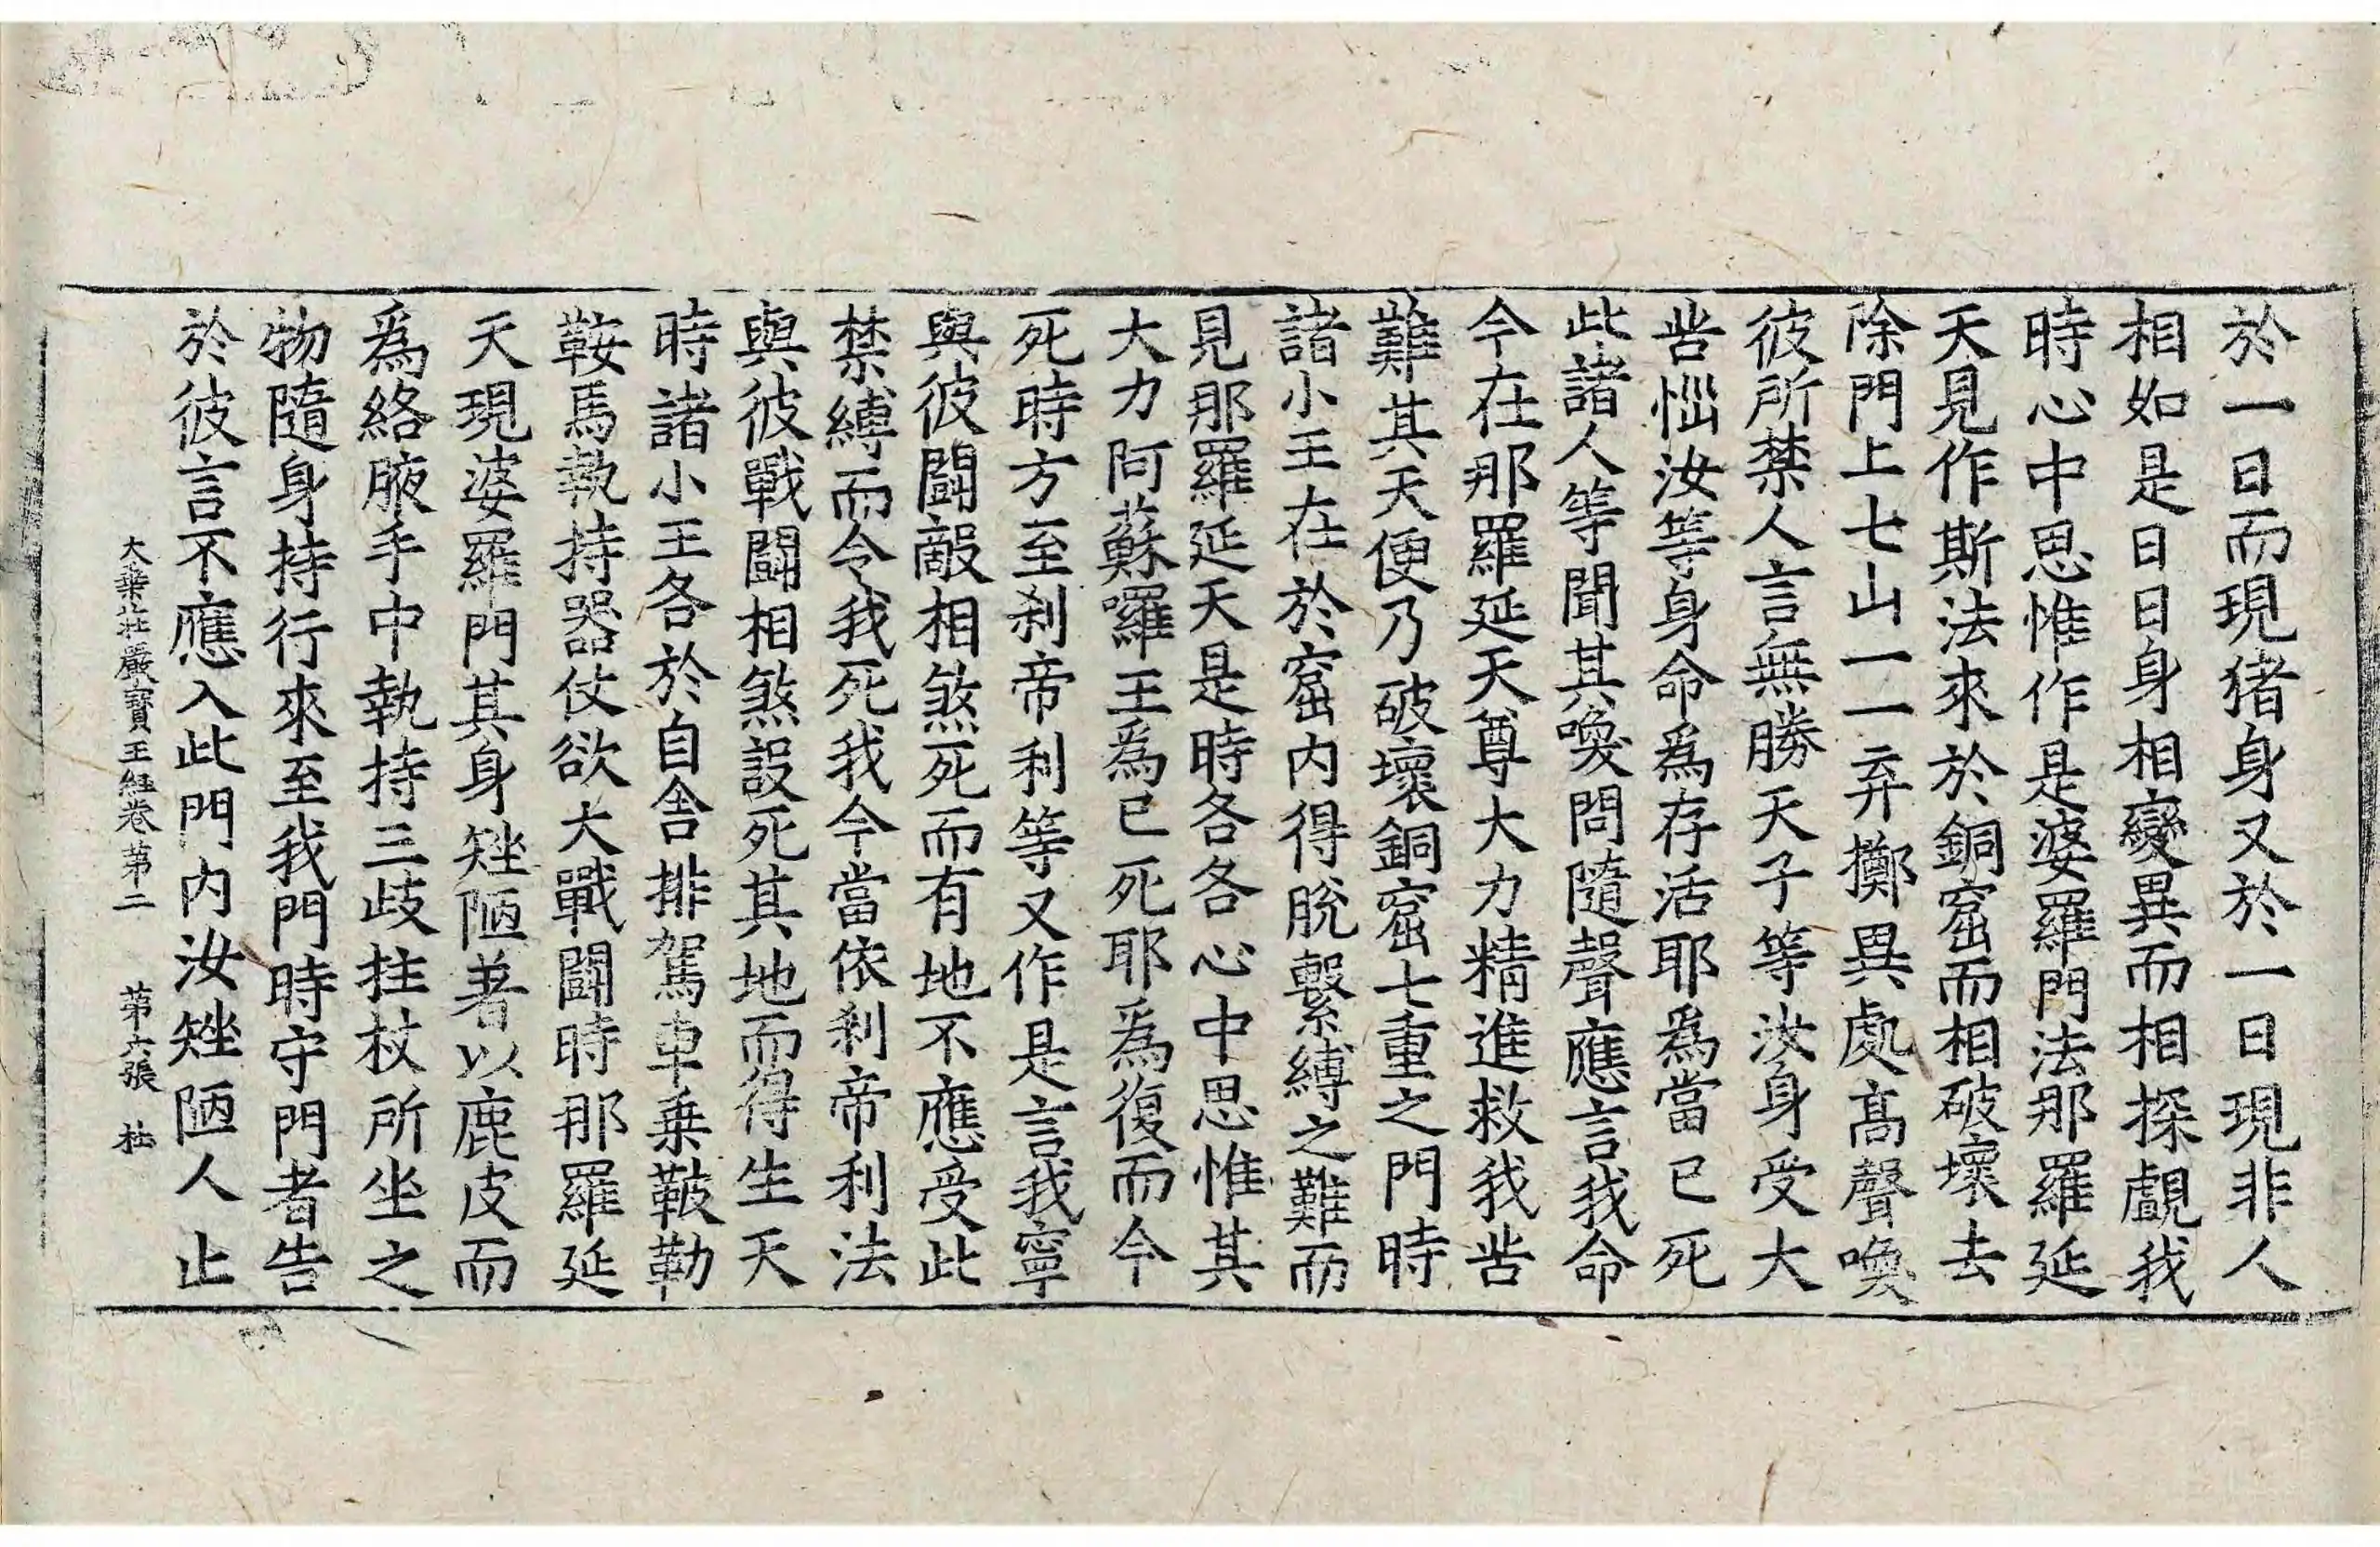 於一日而現猪身又於一日現非人
相如是日日身相變異而相探覰我
時心中思惟作是婆羅門法那羅延
天見作斯法來於銅窟而相破壞去
除門上七山一一弃擲異處髙聲喚
彼所禁人言無勝天子等汝身受大
苦惱汝等身命爲存活耶爲當已死
此諸人等聞其喚問隨聲應言我命
今在那羅延天尊大力精進救我苦
難其天便乃破壞銅窟七重之門時
諸小王在於窟内得脫繫縛之難而
見那羅延天是時各各心中思惟其
大力阿蘇囉王爲已死耶爲復而今
死時方至刹帝利等又作是言我寧
與彼鬪敵相煞死而有地不應受此
禁縛而令我死我今當依刹帝利法
與彼戰鬪相煞設死其地而得生天
時諸小王各於自舍排駕車乗鞁勒
鞍馬執持器仗欲大戰鬪時那羅延
天現婆羅門其身矬陋著以鹿皮而
爲絡腋手中執持三歧拄杖所坐之
物隨身持行來至我門時守門者告
於彼言不應入此門内汝矬陋人止
大乗莊嚴寶王經卷第二　第六張